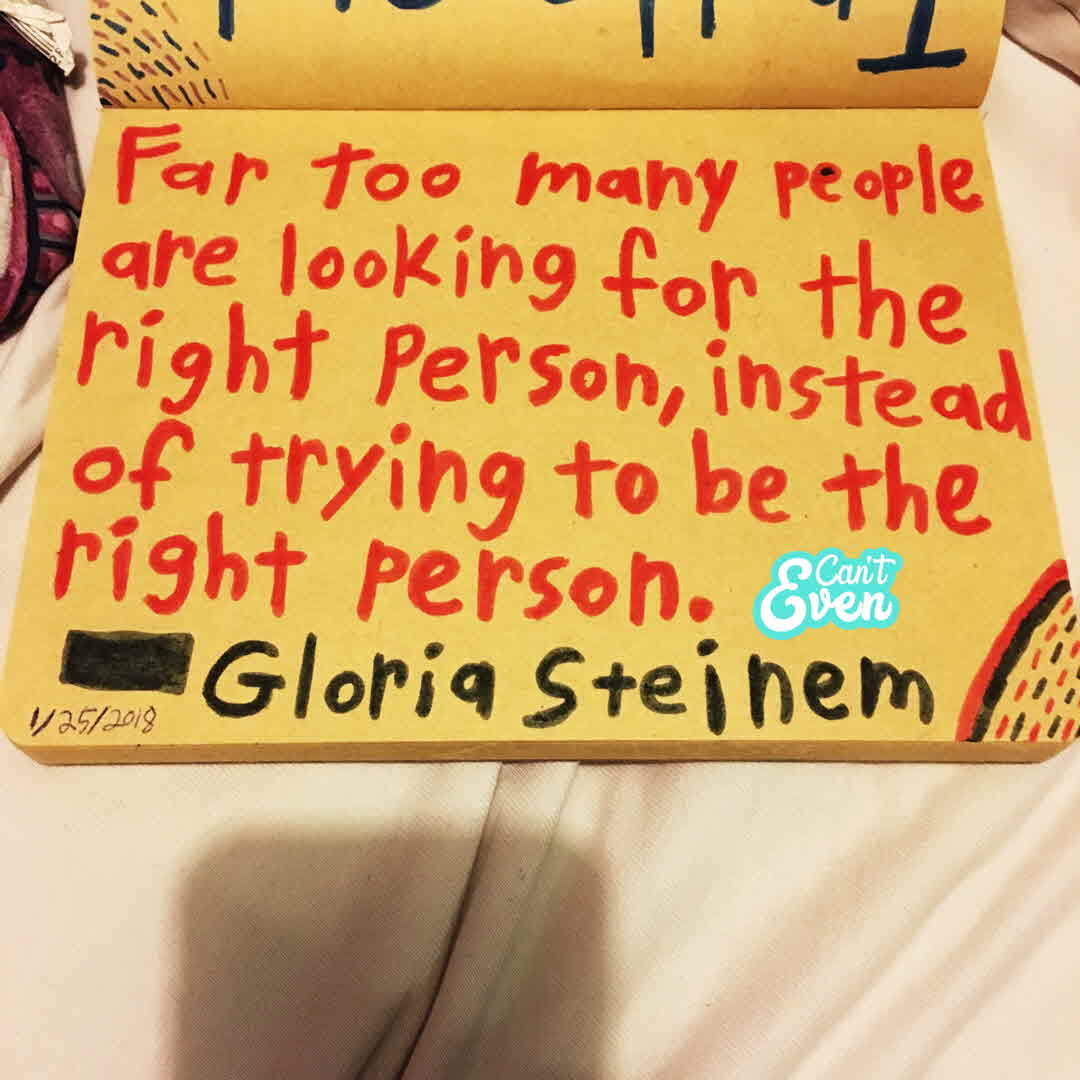 Far too many people
are looking for the
right person, instead
of trying to be the
right person.
Can't
Even
Gloria Steinem
1/25/2018